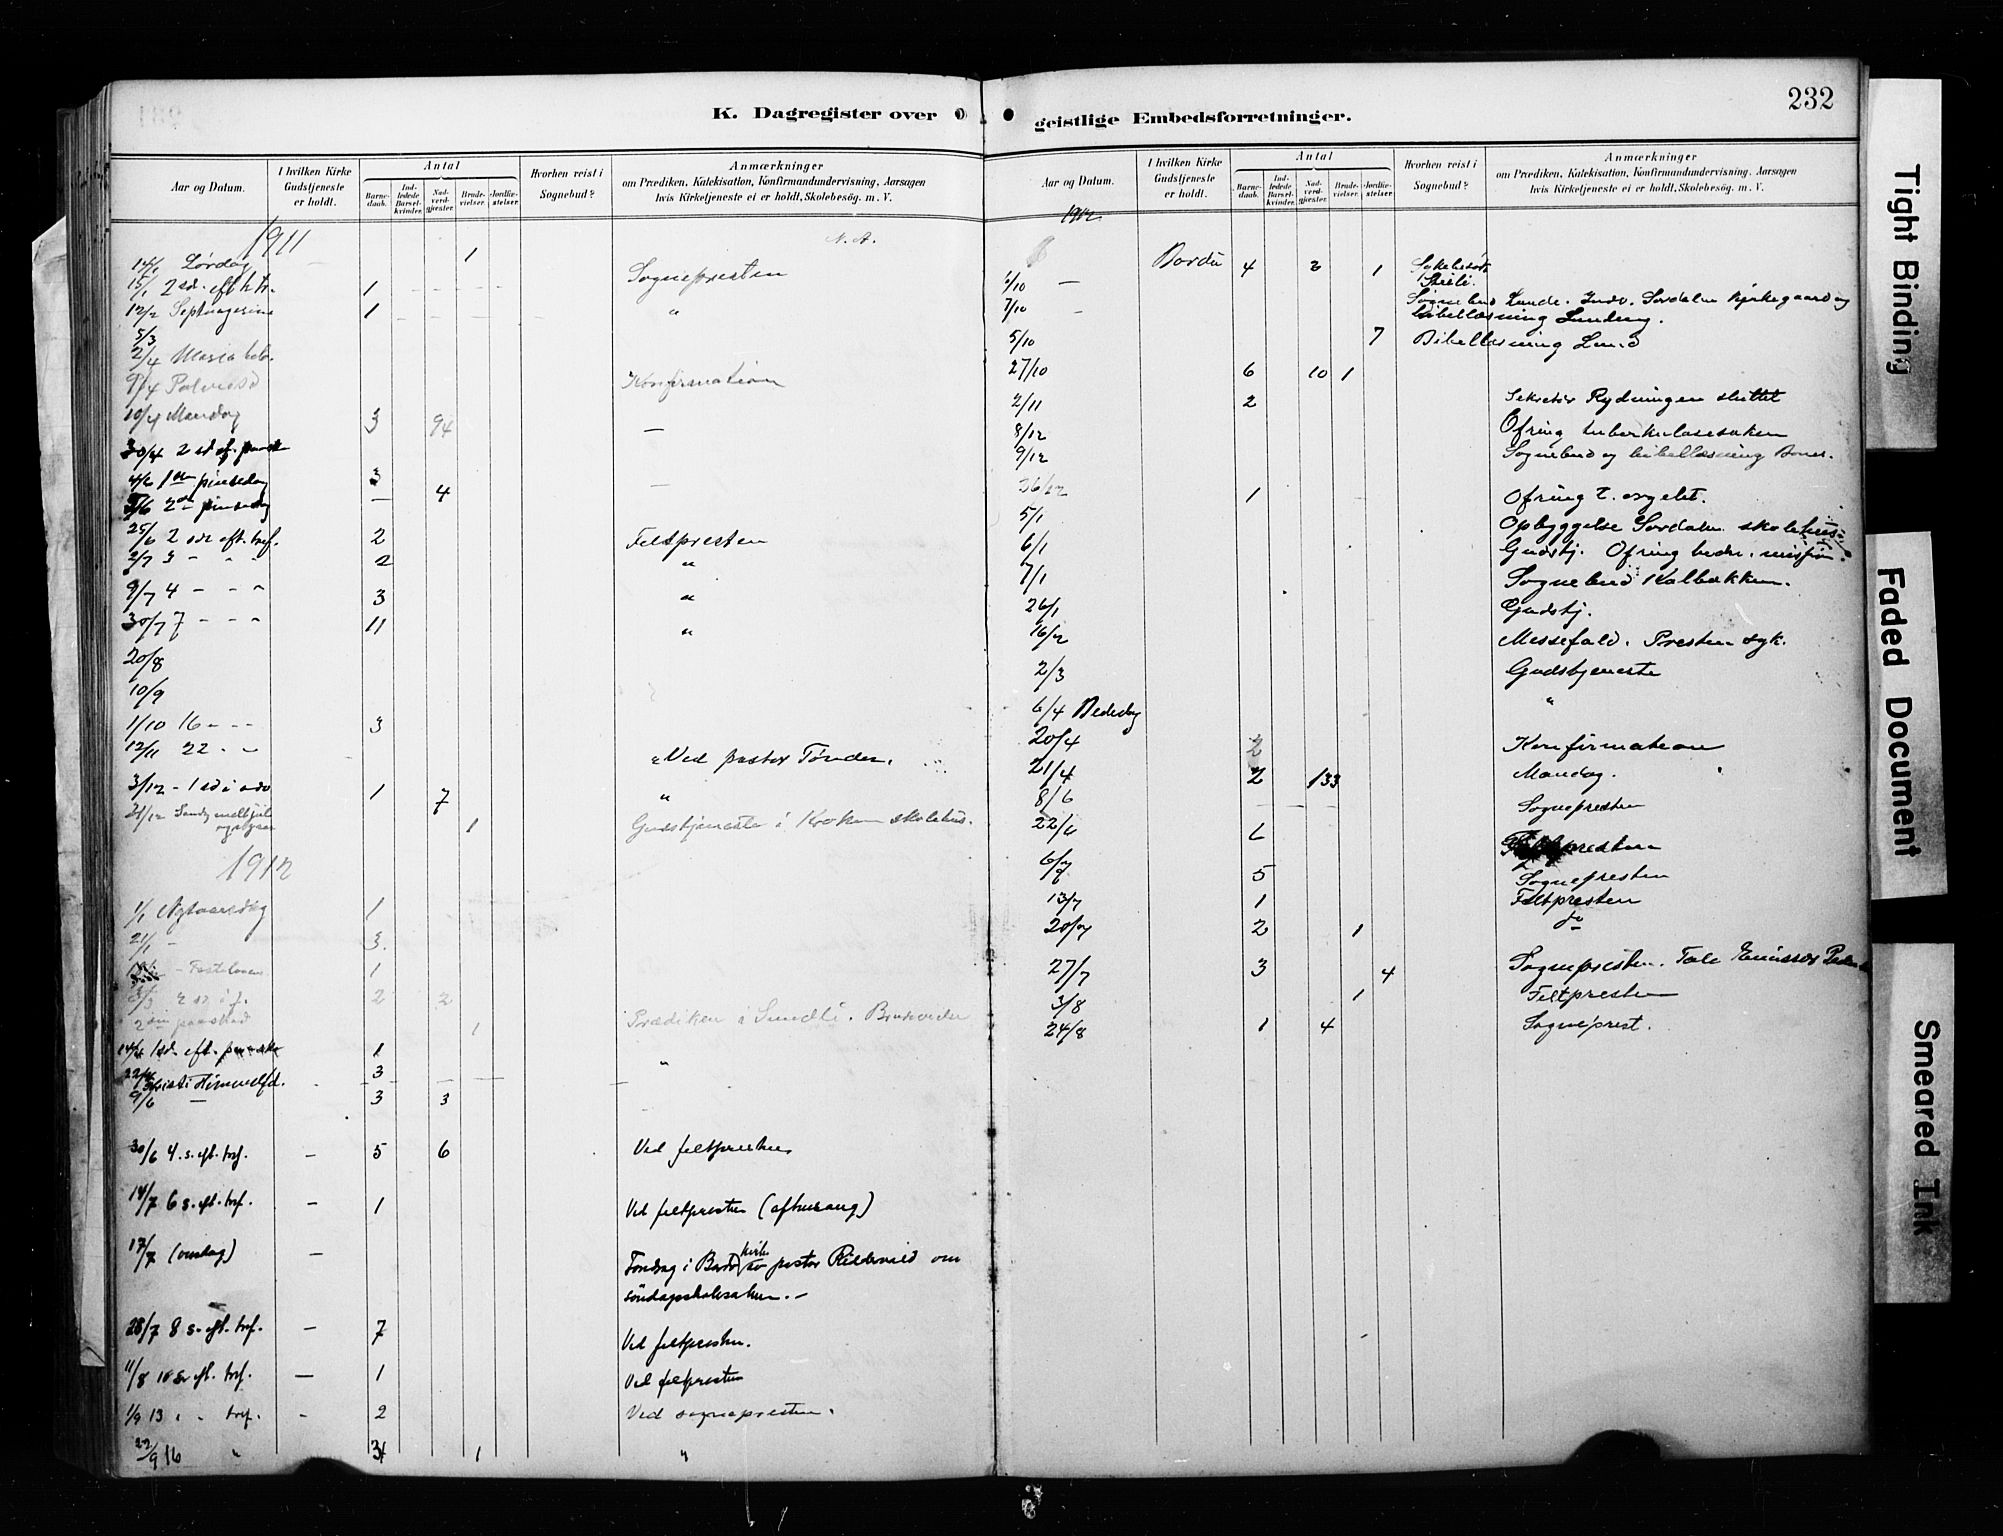 K. Dagregister over
Aar og Datum.
I hvilken Kirke Gudstjeneste er holdt.
Antal
Barne-daab.
Ind-ledede Barsel-kvinder.
Nad-verd-gjester.
Brude-vielser.
Jordfæ-stelser.
Hvorhen reist i Sognebud?
Anmærkninger
om Prædiken, Katekisation, Konfirmandundervisning, Aarsagen
hvis Kirketjeneste ei er holdt, Skolebesög. m. V.
1911
14/1 Lørdag 1
15/1 2 sd. eft h.tr. 1 Sognepresten
12/2 Septuagesima 1 "
5/3
2/4 Maria
9/4 Palmesd Konfirmation
10/4 Mandag 3 94 —
30/4 2 sd ef. paask
4/6 1ste pinsedag 3 —
5/6 2den pinsedag — 4
25/6 2 sdr eft. tref. 2 Feltpresten
2/7 3 - - - 2 "
9/7 4 - - - 3 "
30/7 7 - - - 11 "
20/8
10/9
1/10 16 - - - 3
12/11 22 - - " Ved pastor Tønder.
3/12 - 1 sd i adv 1 7 "
31/12 1 Gudstjeneste i Kroken skolehus.
1912
1/1 Nytaarsdag 1
21/1 - 3.
- Fastelavn 1
3/3 2 sd i f. 2 2
2den paasked 1 Prædiken i Brudevielse
14/4 1sd. eft. paaske 1 "
3
Kristi Himmelfd.
9/6 — 3 3 —
30/6 4. s. eft. tref. — 5 6 Ved feltpresten
14/7 6 s. eft. tref. — 1 Ved feltpresten (aftensang)
17/7 (onsdag) — Foredrag i Bardo kirke av pastor om
søndagsskolesaken. —
28/7 8 s. eft. tref. — 7 Ved feltpresten.
11/8 10 s. eft. tref. — 1 Ved feltpresten
1/9 13 " " tref. - 2 Ved sognepresten.
22/9 16 " 3 1 "
geistlige Embedsforretninger.
232
Aar og Datum.
I hvilken Kirke Gudstjeneste er holdt.
Antal
Barne-daab.
Ind-ledede Barsel-kvinder.
Nad-verd-gjester.
Brude-vielser.
Jordfæ-stelser.
Hvorhen reist i Sognebud?
Anmærkninger
om Prædiken, Katekisation, Konfirmandundervisning, Aarsagen
hvis Kirketjeneste ei er holdt, Skolebesög. m. V.
1912
Bardu 4 1
/10 —
7/10 - Sognebud Lunde. Indv. Sørdalen kirkegaard og
bibellæsning
5/10 7 Bibellæsning
27/10 6 10 1
2/11 2 Sekretær Rydningen sluttet
8/12 Ofring tuberkulosesaken
9/12 Sognebud og bibellæsning Bones.
26/12 1 Ofring t. orgelet.
5/1 Opbyggelse Sørdalen skolehus
6/1 Gudstj. Ofring hedn. misjon.
7/1 Sognebud Kolbækken.
26/1 Gudstj.
16/2 Messefald. Presten syk.
2/3 Gudstjeneste
6/4 Bededag "
20/4 2 Konfirmation
21/4 2 133 Mandag.
8/6 — — — Sognepresten
22/6 6 Feltpresten
6/7 5 Sognepresten
13/7 1 Feltpresten
20/7 2 1 do
27/7 3 4 Sognepresten. Tale Emissær
3/8 1 Feltpresten
24/8 1 4 Sogneprest.
Tight Binding
Faded Document
Smeared Ink